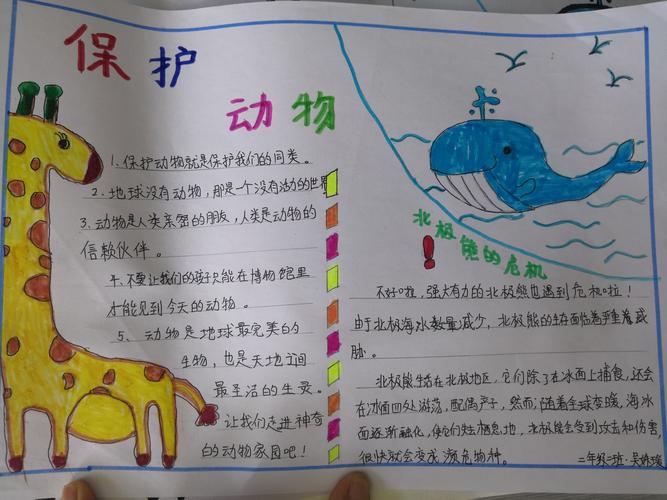 保护
动物
1、保护动物就是保护我们的同类。
2、地球没有动物，那是一个没有活力的世界
3、动物是人类亲密的朋友，人类是动物的
信赖伙伴。
4、不要让我们的孩子只能在博物馆里
才能见到今天的动物。
5、动物是地球最完美的
生物，也是天地之间
最圣洁的生灵。
让我们走进神奇
的动物家园吧！
北极熊的危机
！
不好啦，强大有力的北极熊也遇到危机啦！
由于北极海冰数量减少，北极熊的生存面临着严重着威
胁。
北极熊生活在北极地区，它们除了在冰面上捕食，还会
在冰面四处游荡，配偶产子，然而，随着全球变暖，海冰
面逐渐融化，使它们失去栖息地，北极熊会受到攻击和伤害，
很快就会变成濒危物种。
二年级二班·吴